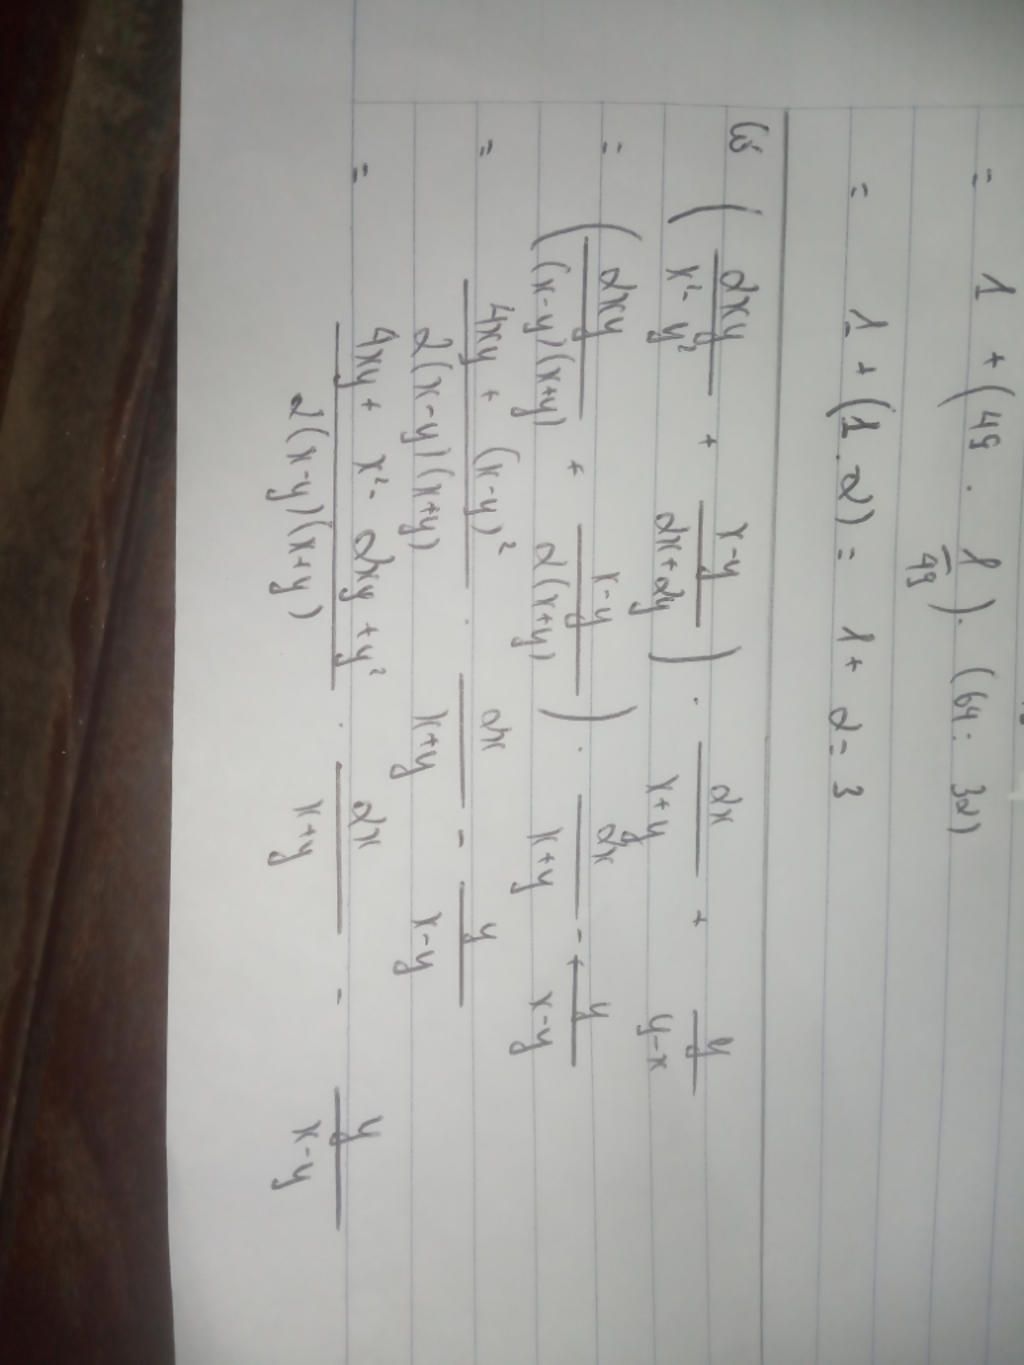 = 1 + (49 . 1/49) . (64 : 32)
= 1 + (1 . 2) = 1 + 2 = 3
(2xy/(x² - y²) + (x-y)/(2x+2y)) . 2x/(x+y) + y/(y-x)
= (2xy/((x-y)(x+y)) + (x-y)/(2(x+y))) . 2x/(x+y) - y/(x-y)
= (4xy + (x-y)²)/(2(x-y)(x+y)) . 2x/(x+y) - y/(x-y)
= (4xy + x² - 2xy + y²)/(2(x-y)(x+y)) . 2x/(x+y) - y/(x-y)